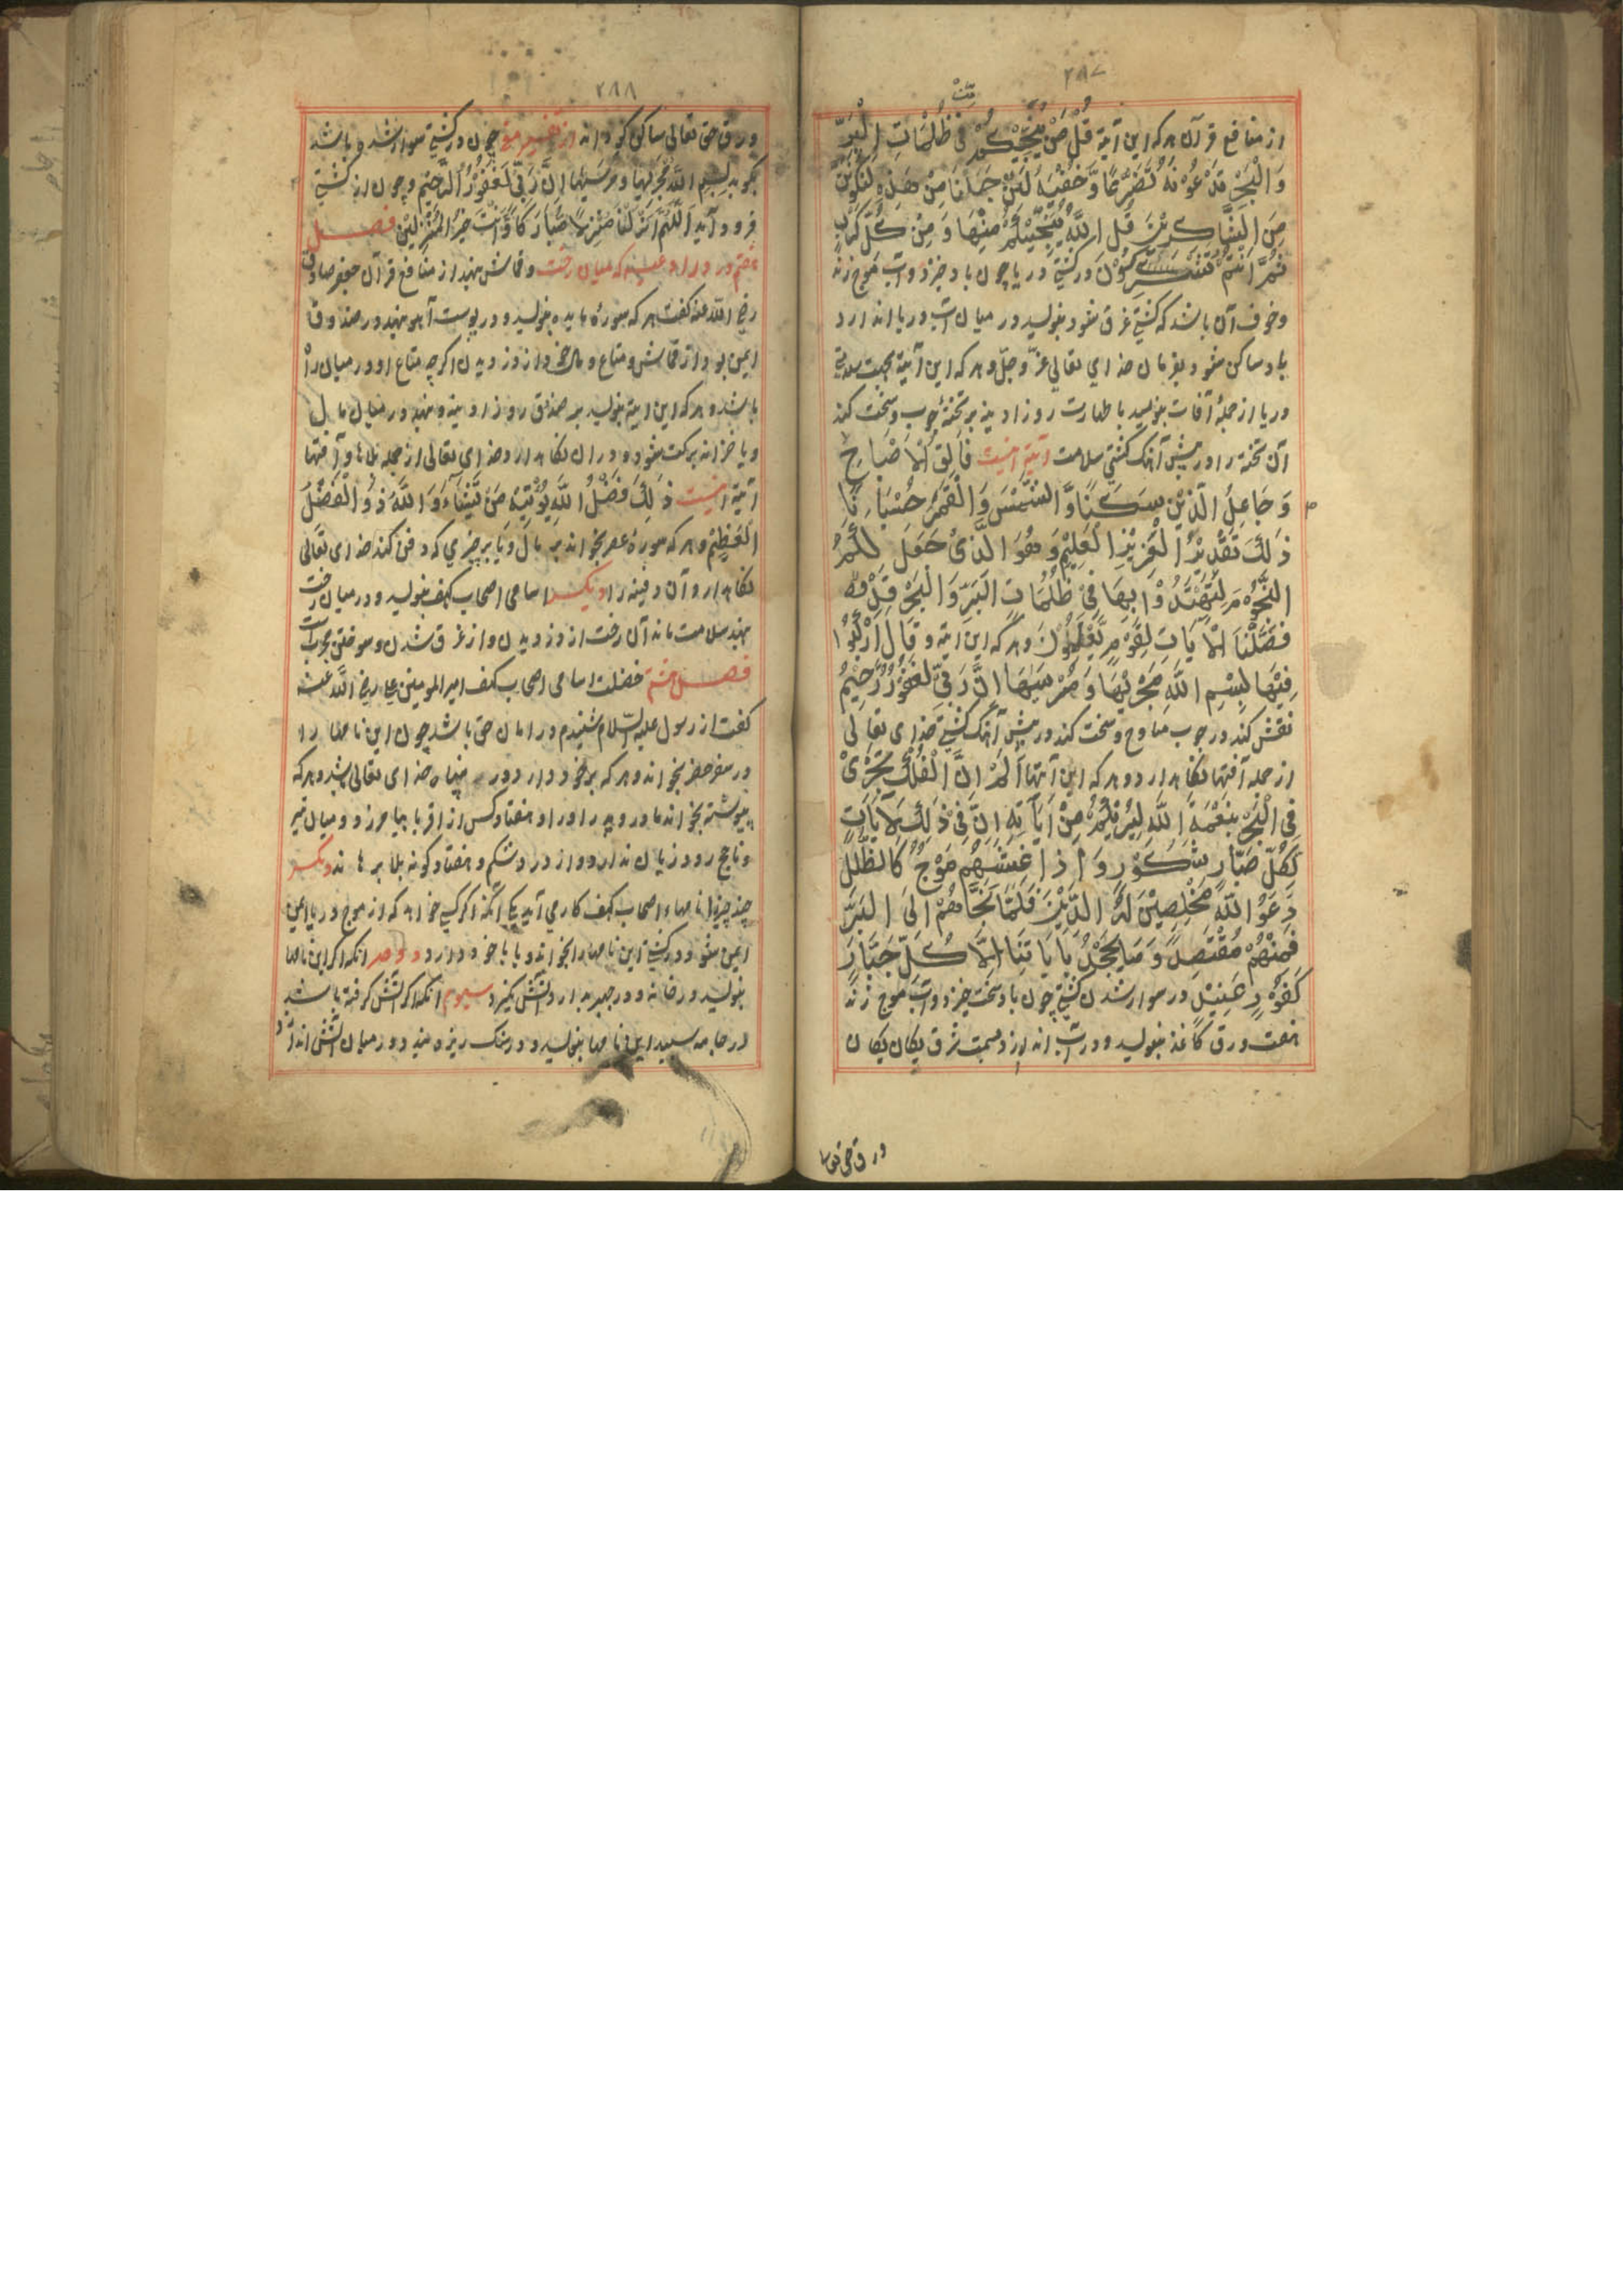 ۲۸۷
از منافع قرآن هر که این آیة قُلْ مَنْ یُنَجِّیْکُمْ مِّنْ فِی ظُلُمَاتِ الْبَرِّ
وَالْبَحْرِ تَدْعُوْنَهُ تَضَرُّعًا وَّخُفْیَةً لَئِنْ اَنْجَانَا مِنْ هٰذِهٖ لَنَکُوْنَنَّ
مِنَ الشَّاکِرِیْنَ قُلِ اللّٰهُ یُنَجِّیْکُمْ مِنْهَا وَمِنْ کُلِّ کَرْبٍ
ثُمَّ اَنْتُمْ تُشْرِکُوْنَ در کشتی دریا چون باد خیزد و آب موج زند
وخوف آن باشد که کشتی غرق شود بنویسد در میان آب دریا اندازد
باد ساکن شود بفرمان خدای تعالی عزّ وجلّ و هر که این آیة بجهت سلامتی
دریا از جملهٔ آفات بنویسد با طهارت روز ادینه بر تختهٔ چوب وسخت کند
آن تخته را در پیش آهنک کشتی سلامت آیة اینست فَالِقُ الْاَصْبَاحِ
وَجَاعِلُ الَّذِیْنَ سَکَنًا وَّالشَّمْسَ وَالْقَمَرَ حُسْبَانًا
ذٰلِکَ تَقْدِیْرُ الْعَزِیْزِ الْعَلِیْمِ وَهُوَ الَّذِیْ جَعَلَ لَکُمُ
النُّجُوْمَ لِتَهْتَدُوْا بِهَا فِیْ ظُلُمَاتِ الْبَرِّ وَالْبَحْرِ قَدْ
فَصَّلْنَا الْاٰیَاتِ لِقَوْمٍ یَّعْلَمُوْنَ و هر که این ایة وقَالَ ارْکَبُوْا
فِیْهَا بِسْمِ اللّٰهِ مَجْرٰیهَا وَمُرْسٰیهَا اِنَّ رَبِّیْ لَغَفُوْرٌ رَّحِیْمٌ
نقش کند در چوب ساج وسخت کند در پیش آهنک کشتی خدای تعالی
از جمله آفتها نکاه دارد و هر که این آیتها اَلَمْ تَرَ اَنَّ الْفُلْکَ تَجْرِیْ
فِی الْبَحْرِ بِنِعْمَةِ اللّٰهِ لِیُرِیَکُمْ مِنْ اٰیَاتِهٖ اِنَّ فِیْ ذٰلِکَ لَاٰیَاتٍ
لِکُلِّ صَبَّارٍ شَکُوْرٍ وَاِذَا غَشِیَهُمْ مَوْجٌ کَالظُّلَلِ
دَعَوُا اللّٰهَ مُخْلِصِیْنَ لَهُ الدِّیْنَ فَلَمَّا نَجَّاهُمْ اِلَی الْبَرِّ
فَمِنْهُمْ مُقْتَصِدٌ وَمَا یَجْحَدُ بِاٰیَاتِنَا اِلَّا کُلُّ جَبَّارٍ
کَفُوْرٍ عَنِیْدٍ در سوار شدن کشتی چون باد سخت خیزد و آب موج زند
هفت ورق کاغذ بنویسد و در آب اندازد سمت شرق یکان یکان
ورق حق تعالی
۲۸۸
ورق حق تعالی ساکن کرداند از تفسیر مغنی چون در کشتی سوار شده باشد
بکوید بسم اللّٰه مجریها ومرسیها ان ربی لغفور الرحیم وچون از کشتی
فرود آید اللّٰهم انزلنا منزلا مبارکا وانت خیر المنزلین فصل
هفتم در که میان رخت وقماش نهند از منافع قرآن جعفر صادق
رضی اللّٰه عنه کفت هر که سورة مایده بنویسد و در پوست آهو نهد در صندوق
ایمن بود از قماش ومتاع ومال خود از دزدیدن اکرچه متاع او در میان راه
باشد و هر که این ایة بنویسد بر صندوق روز ادینه و بنهد در میان مال
ویا خزانه برکت شود و در ان نکاه دارد خدای تعالی از جمله بلاها و آفتها
آیة اینست ذٰلِکَ فَضْلُ اللّٰهِ یُؤْتِیْهِ مَنْ یَّشَآءُ وَاللّٰهُ ذُو الْفَضْلِ
الْعَظِیْمِ و هر که سورة عصر بخواند بر مال ویا بر چیزی که دفن کند خدای تعالی
نکاه دارد آن دفینه را دیکر اسامی اصحاب کهف بنویسد و در میان رخت
نهد سلامت ماند آن رخت از دزدیدن و از غرق شدن وسوختن مجربست
فصل هشتم فضلت اسامی اصحاب کهف امیر المومنین علی رضی اللّٰه عنه
کفت از رسول علیه السّلام شنیدم در امان حق باشد چون این نامها را
در سفر حضر بخواند و هر که بر خود دارد در پناه خدای تعالی باشد و هر که
پیوسته بخواند مادر و پدر او را و هفتاد کس از اقربا بیامرزد و میان تیر
وناچخ رود زیان ندارد و از درد شکم و هفتاد کونه بلا برهاند دیکر
چند چیز نامهاء اصحاب کهف کار می آید یکی آنکه اکر کسی خواهد که از موج دریا ایمن
ایمن شود در کشتی این نامها را بخواند ویا با خود دارد دوم آنکه اکر این نامها
بنویسد در خانه و در دیوار آتش نکیرد سیوم آنکه اکر آتش کرفته باشد
در جامه سپید این نامها بنویسد و در سنک ریزه بندد و در میان آتش اندازد